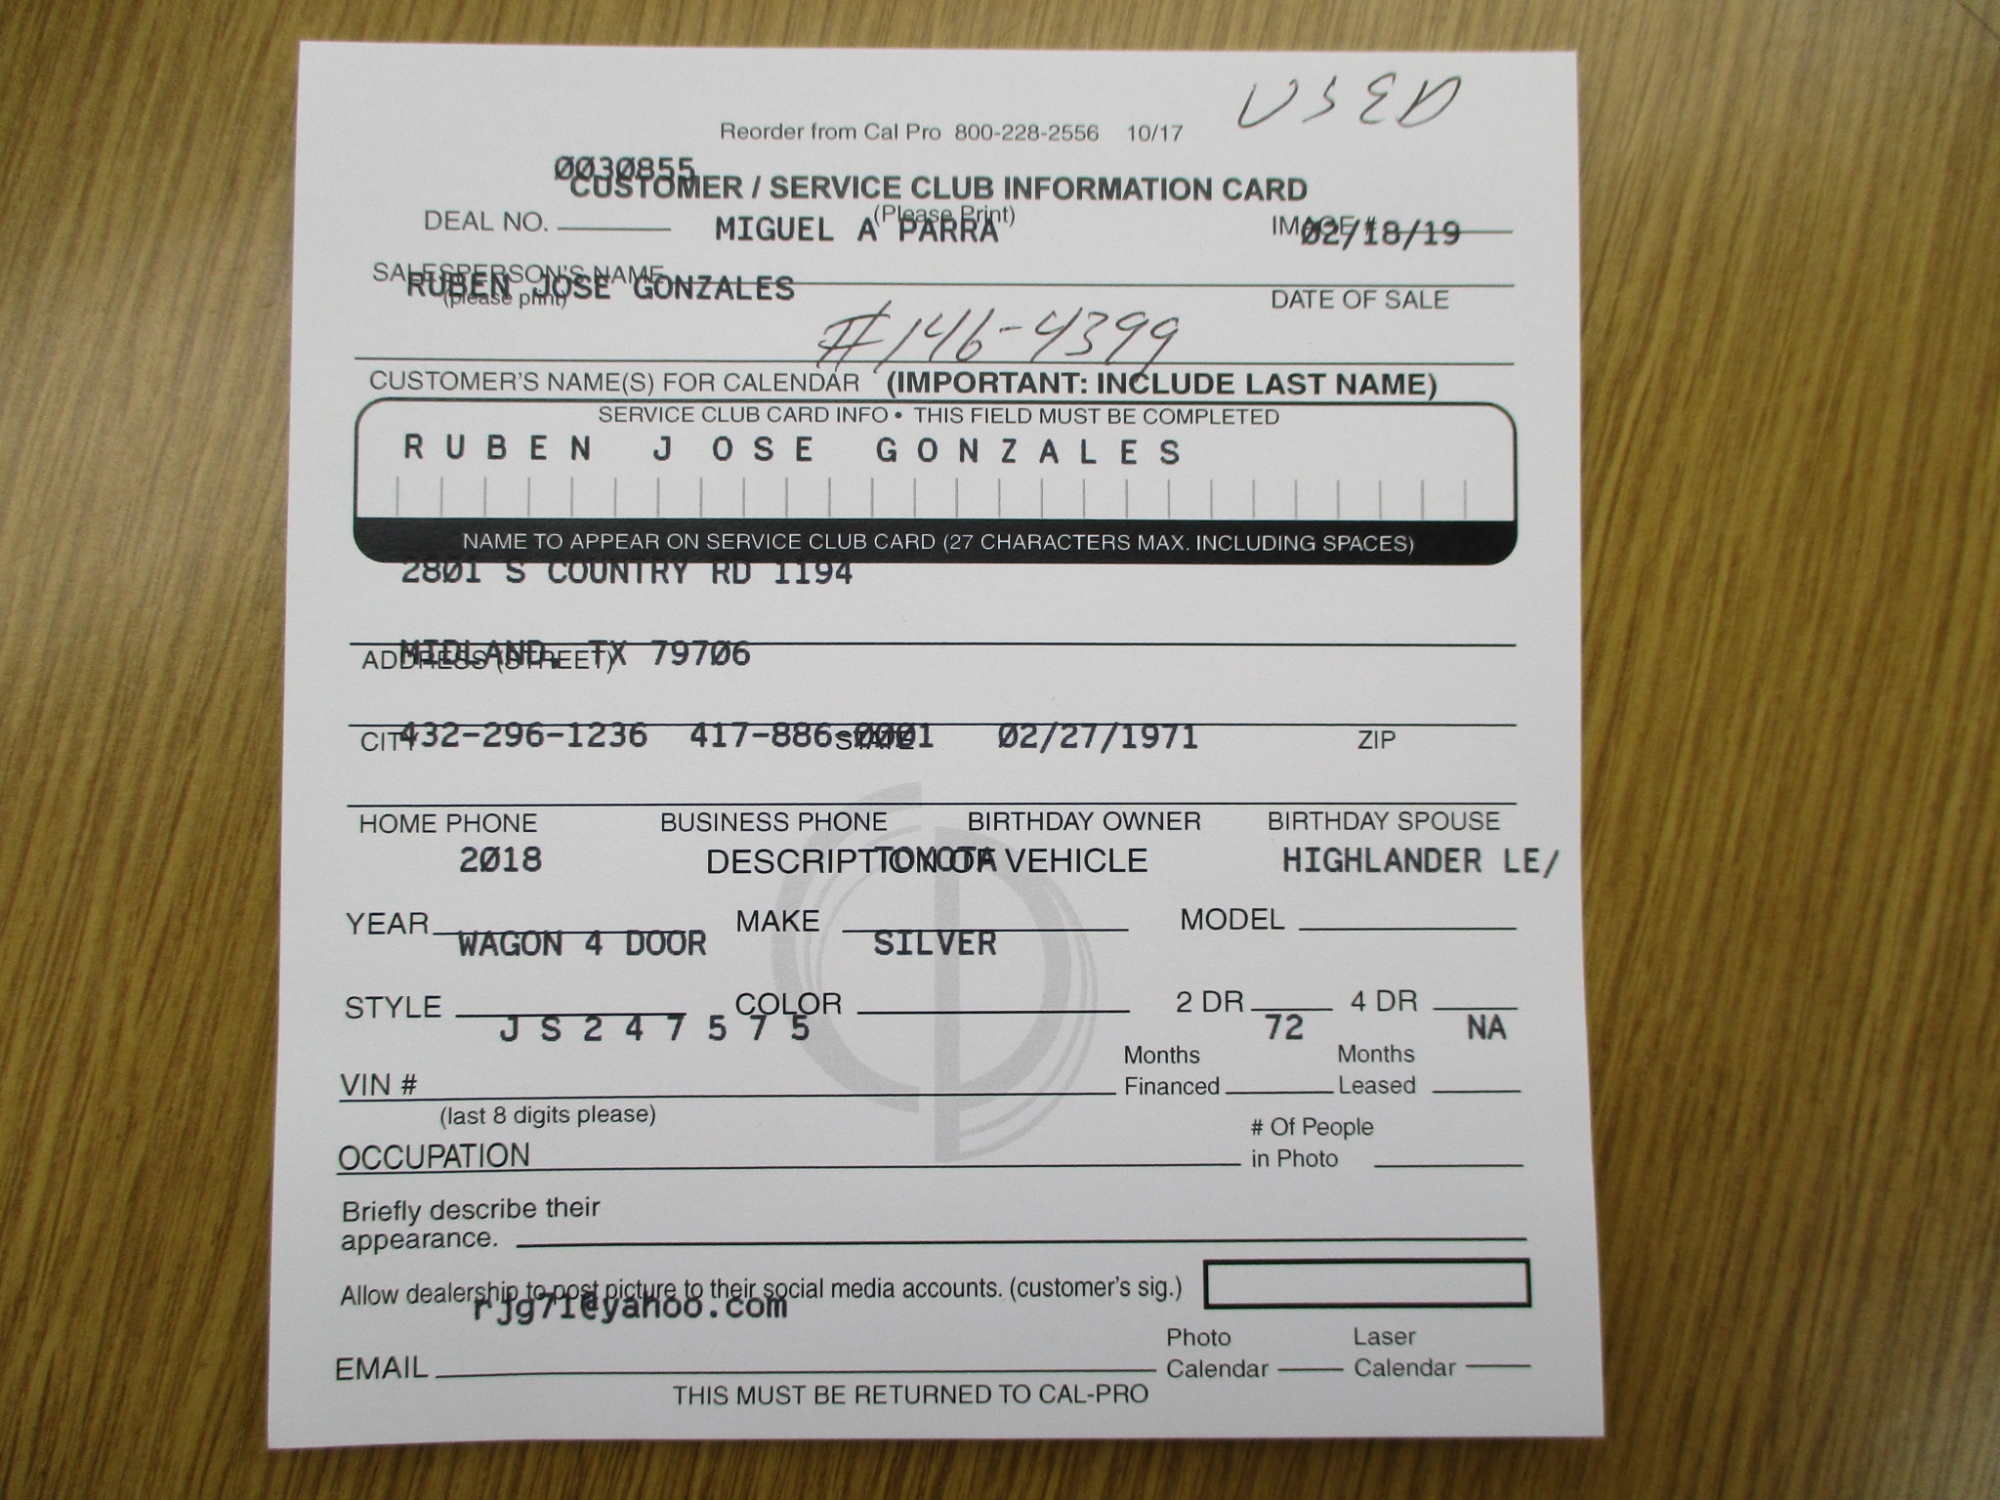 USED
Reorder from Cal Pro 800-228-2556 10/17
0030855
CUSTOMER / SERVICE CLUB INFORMATION CARD
(Please Print)
DEAL NO. MIGUEL A PARRA IMAGE # 02/18/19
SALESPERSON'S NAME
RUBEN JOSE GONZALES
(please print) DATE OF SALE
#146-4399
CUSTOMER'S NAME(S) FOR CALENDAR (IMPORTANT: INCLUDE LAST NAME)
SERVICE CLUB CARD INFO • THIS FIELD MUST BE COMPLETED
RUBEN JOSE GONZALES
NAME TO APPEAR ON SERVICE CLUB CARD (27 CHARACTERS MAX. INCLUDING SPACES)
2801 S COUNTRY RD 1194
MIDLAND, TX 79706
ADDRESS (STREET)
432-296-1236 417-886-0001 02/27/1971
CITY STATE ZIP
HOME PHONE BUSINESS PHONE BIRTHDAY OWNER BIRTHDAY SPOUSE
2018 TOYOTA HIGHLANDER LE/
DESCRIPTION OF VEHICLE
YEAR MAKE MODEL
WAGON 4 DOOR SILVER
STYLE COLOR 2 DR 4 DR
JS247575 72 NA
Months Months
VIN # Financed Leased
(last 8 digits please)
# Of People
OCCUPATION in Photo
Briefly describe their
appearance.
Allow dealership to post picture to their social media accounts. (customer's sig.)
rjg71@yahoo.com
Photo Laser
EMAIL Calendar Calendar
THIS MUST BE RETURNED TO CAL-PRO